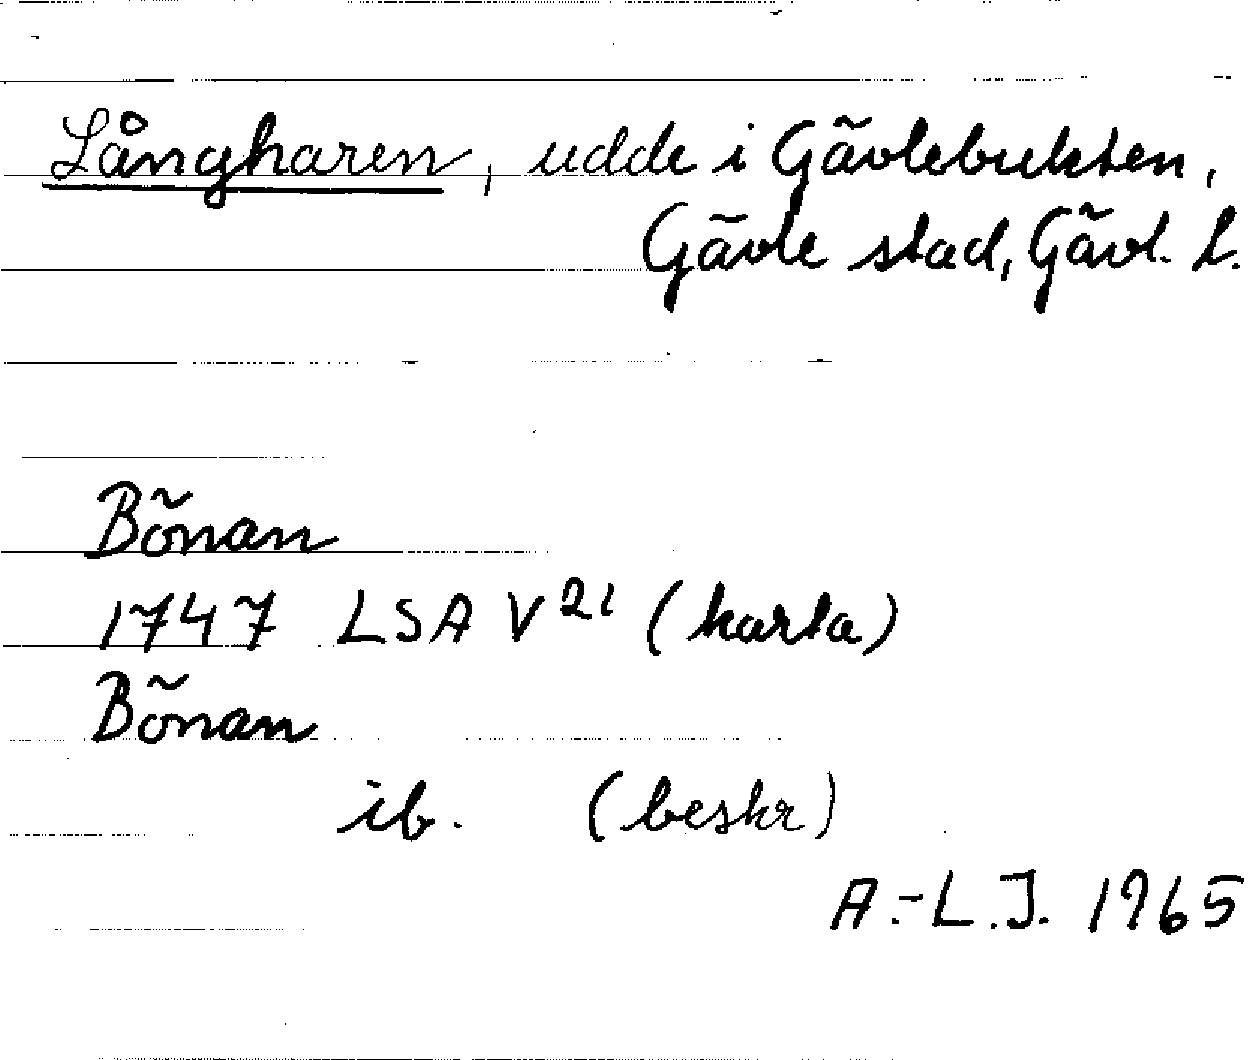 Långharen, udde i Gävlebukten,
Gävle stad, Gävl. l.
Bönan
1747 LSA V 21 (karta)
Bönan
ib. (beskr)
A.-L.J. 1965